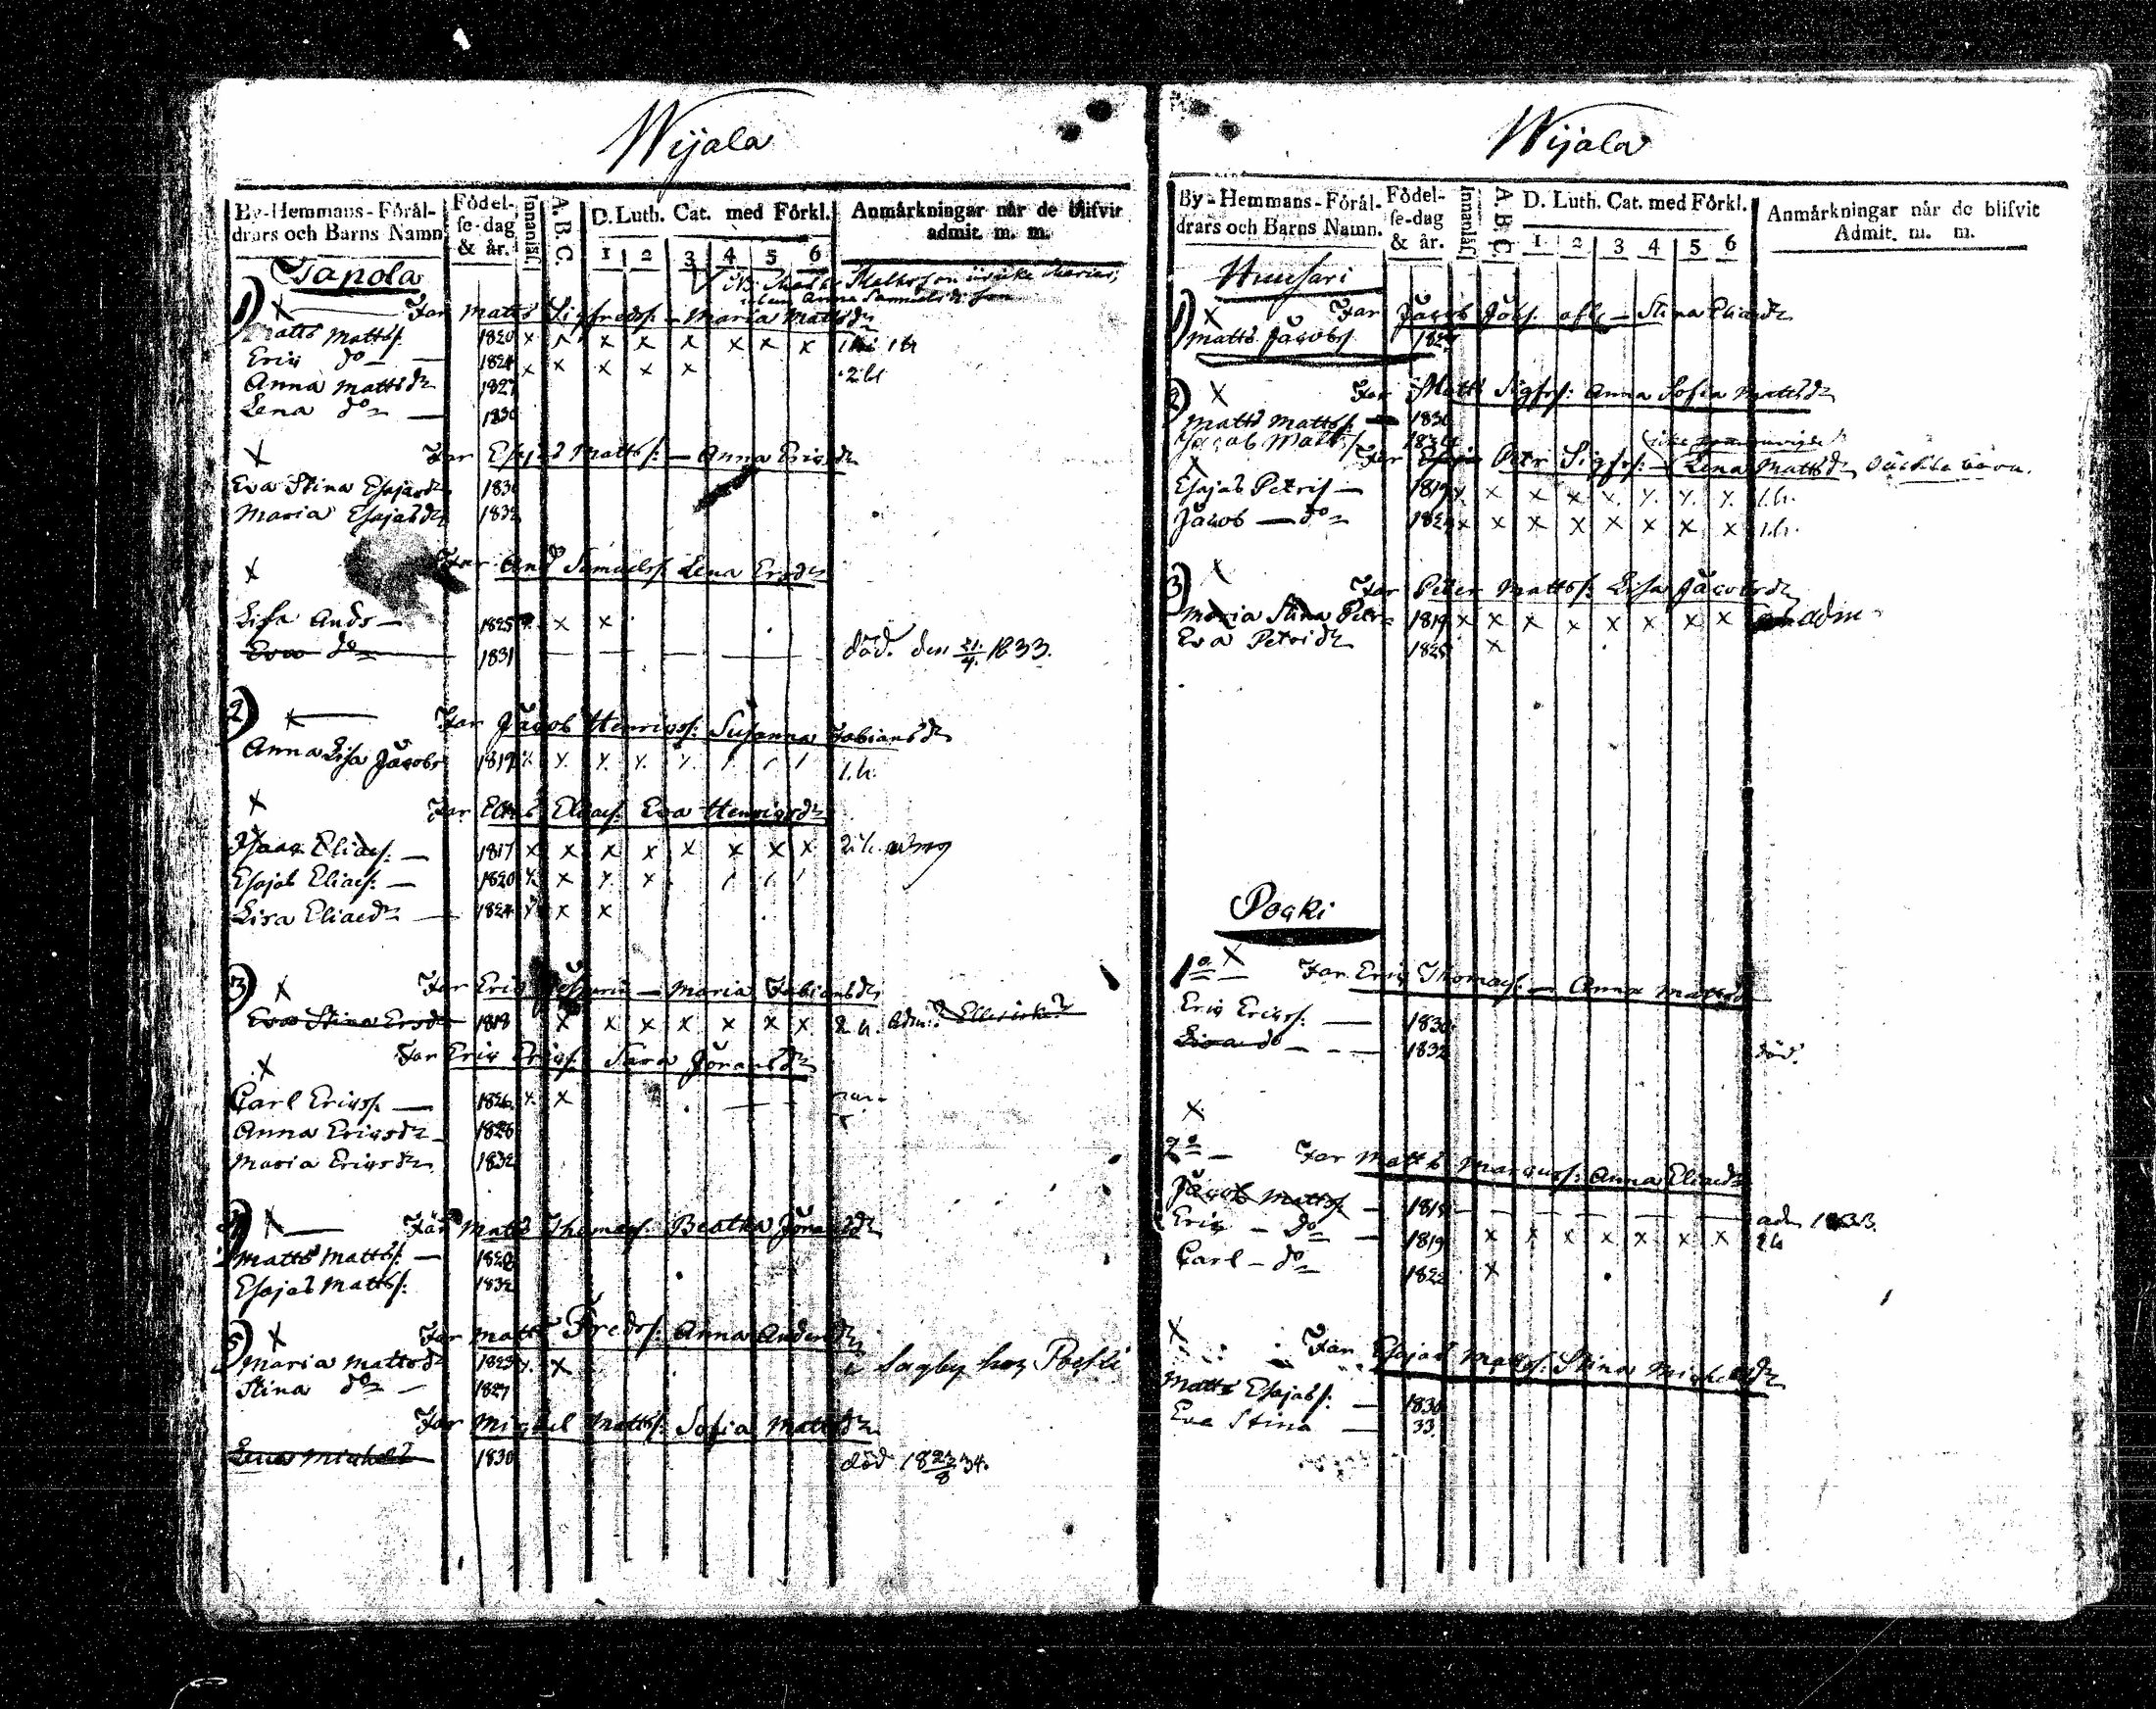 Wijala
By-Hemmans-Förål-
drars och Barns Namn
Födel-
se-dag
& år.
Innanläs.
A. B. C.
D. Luth. Cat. med Förkl.
1 2 3 4 5 6
Anmårkningar når de blifvit
admit. m. m.
Tapola
1) X Far Matts Sigfredss: — Maria Mattsdr
Matts Mattss: 1820 x x x x x x x x
Eric do — 1824 x x x x x 2 h
Anna Mattsdr 1827
Lena do 1830
X Far Esajas Mattss: — Anna Ericsdr
Eva Stina Esajasdr 1830
Maria Esajasdr 1832
X Far And Samuelss. Lena Ersdr
Lisa Ands — 1825 x x x
Eva do 1831 — — — död. den 21/4. 1833.
2) x — Far Jacob Henricss: Susanna Fabiansdr
Anna Lisa Jacobs 1819 1.h.
X Far Elias Eliass. Eva Henricsdr
Isaac Eliass. — 1817 x x x x x x x x 2 h.
Esajas Eliass: — 1820 x x x x
Lisa Eliaedr — 1824 x x x
3) X Far Eric — Maria Fabiansdr
Eva Stina Ersdr 1818 x x x x x x x 2 h. adm:
X Far Eric Ericss. Sara Jöransdr
Carl Ericss. — 1826 x x
Anna Ericsdr 1828
Maria Ericsdr 1832
4) X — Far Matts Thomass. Beatha Jöransdr
Matts Mattss: — 1828
Esajas Mattss: 1832
5) X Far Matts Fredss: Anna Andersdr
Maria Mattsdr 1823 x x i Sagby hos Poeski
Stina do — 1827
Far Michel Mattss: Sofia Mattsdr
Lena Michelsd 1830 död 18 23/8 34.
Wijala
By-Hemmans-Förål-
drars och Barns Namn.
Födel-
se-dag
& år.
Innanläs.
A. B. C.
D. Luth. Cat. med Förkl.
1 2 3 4 5 6
Anmårkningar når de blifvit
Admit. m. m.
Huusari
1) X Far Jacob Jöss. — Stina Eliaedr
Matts Jacobs
2) X Far Matts Sigfrs: Anna Sofia Mattsdr
Matts Mattss. — 1830
Jacob Mattss
X Far Petr Sigfrs: — Lena Mattsdr
Esajas Petris — 1819 x x x x x x x x 1.h.
Jacob — do 1824 x x x x x x x x 1.h.
3) X Far Peter Mattss: Lisa Jacobsdr
Maria Stina Petr 1819 x x x x x x x x adm
Eva Petridr 1825 x
Pogki
1o X — Far Eric Thomass: — Anna Mattsdr
Eric Ericss. — 1830
Lisa do — 1832 död.
X
2o — Far Matts Marcuss: Anna Eliaedr
Jacob Mattss. — 1815 — adm 1833.
Eric — do — 1819 x x x x x x x 2 h
Carl — do 1822 x
X Far Esajas Mattss: Stina Michelsdr
Matts Esajass: — 1830
Eva Stina — 33.